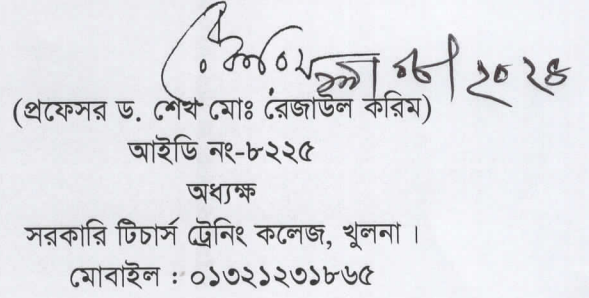 ২০২৪
(প্রফেসর ড. শেখ মোঃ রেজাউল করিম)
আইডি নং-৮২২৫
অধ্যক্ষ
সরকারি টিচার্স ট্রেনিং কলেজ, খুলনা ।
মোবাইল : ০১৩২১২৩১৮৬৫